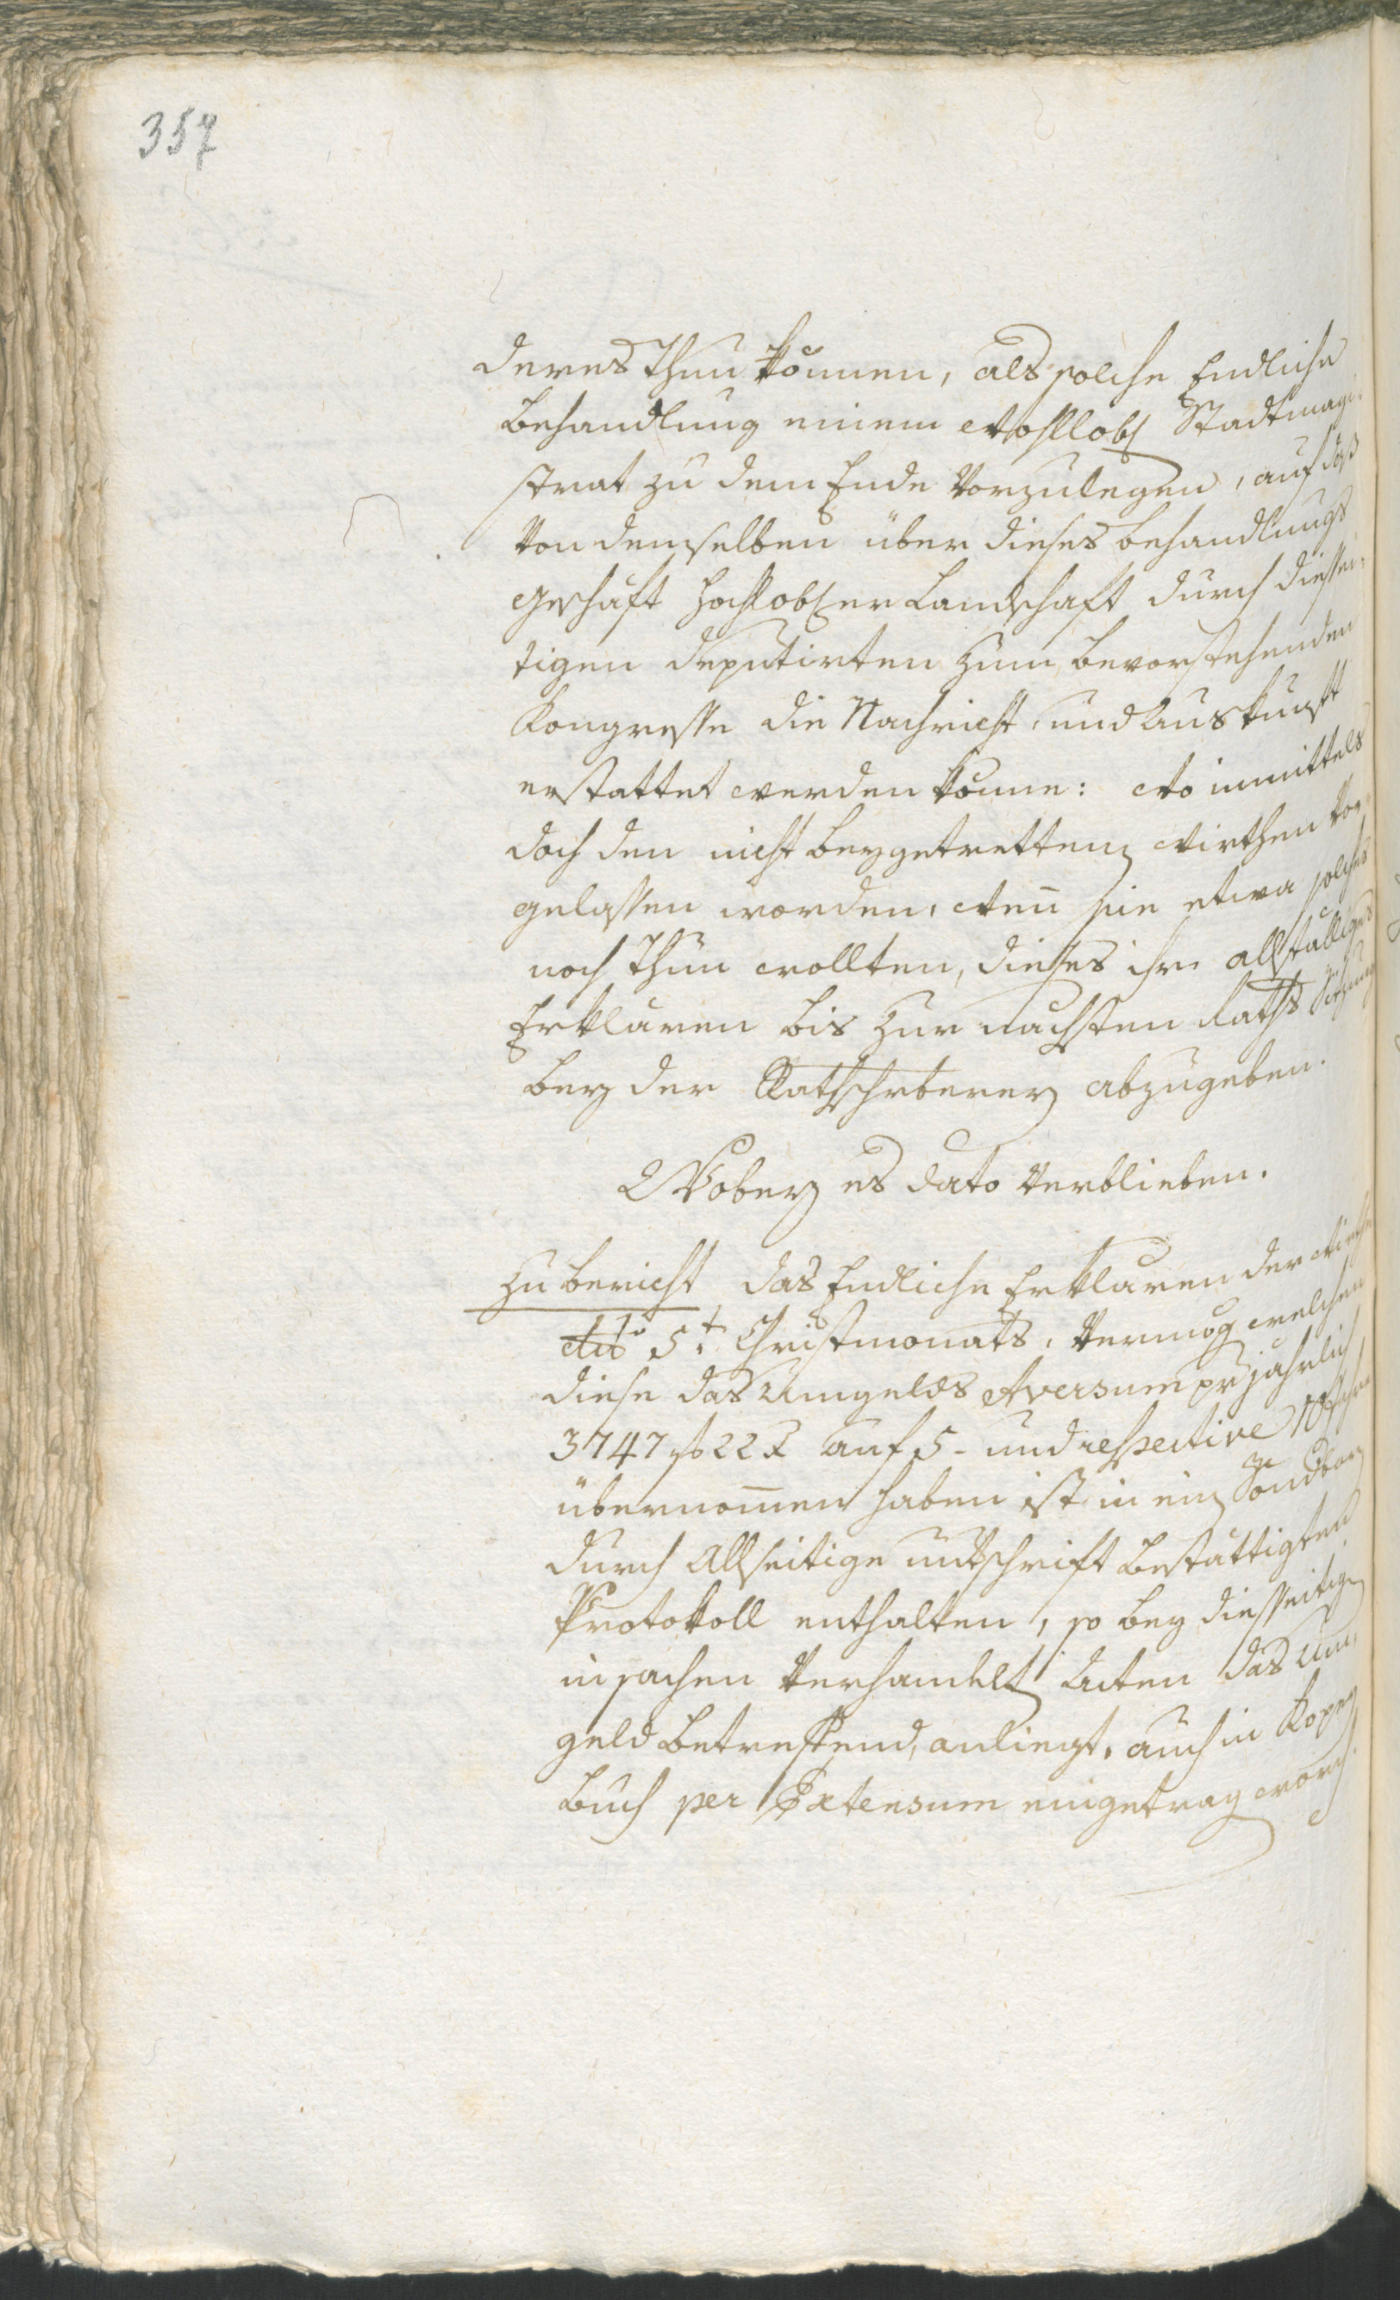 357
deres thun können, als solche Endliche
behandlung einem Wohllobl. Stadtmagi-
strat zu dem Ende vorzulegen, auf daß
von demselben über dieses behandlungs
geschäft Hochlobl.er Landschaft durch diessei-
tigen Deputirten zum bevorstehenden
Kongresse die Nachricht und Auskunft
erstattet werden könne: wo inmittels
doch den nicht beygetretten Wirthen vor
gelassen worden, wen sie etwa solches
noch thun wollten, dieses ihr allfälliges
Erklären bis zur nächsten Raths Sitzung
bey der Rathschrberey abzugeben.
Wobey es dato verblieben.
Zu bericht das Endliche Erklären der Wirthe
dto 5t Christmonats, vermög welchen
diese das Umgelds Aversum pr jährlich
3747 f 22 x auf 5- und respective 10 Jahre
übernomen haben ist in ein Sondbar
durch Allseitige untschrift bestättigten
Protokoll enthalten, so bey diesseitigen
in sachen verhandelt Acten das Um-
geld betreffend, anliegt, auch in Kopey
buch per Extensum eingetrag word.